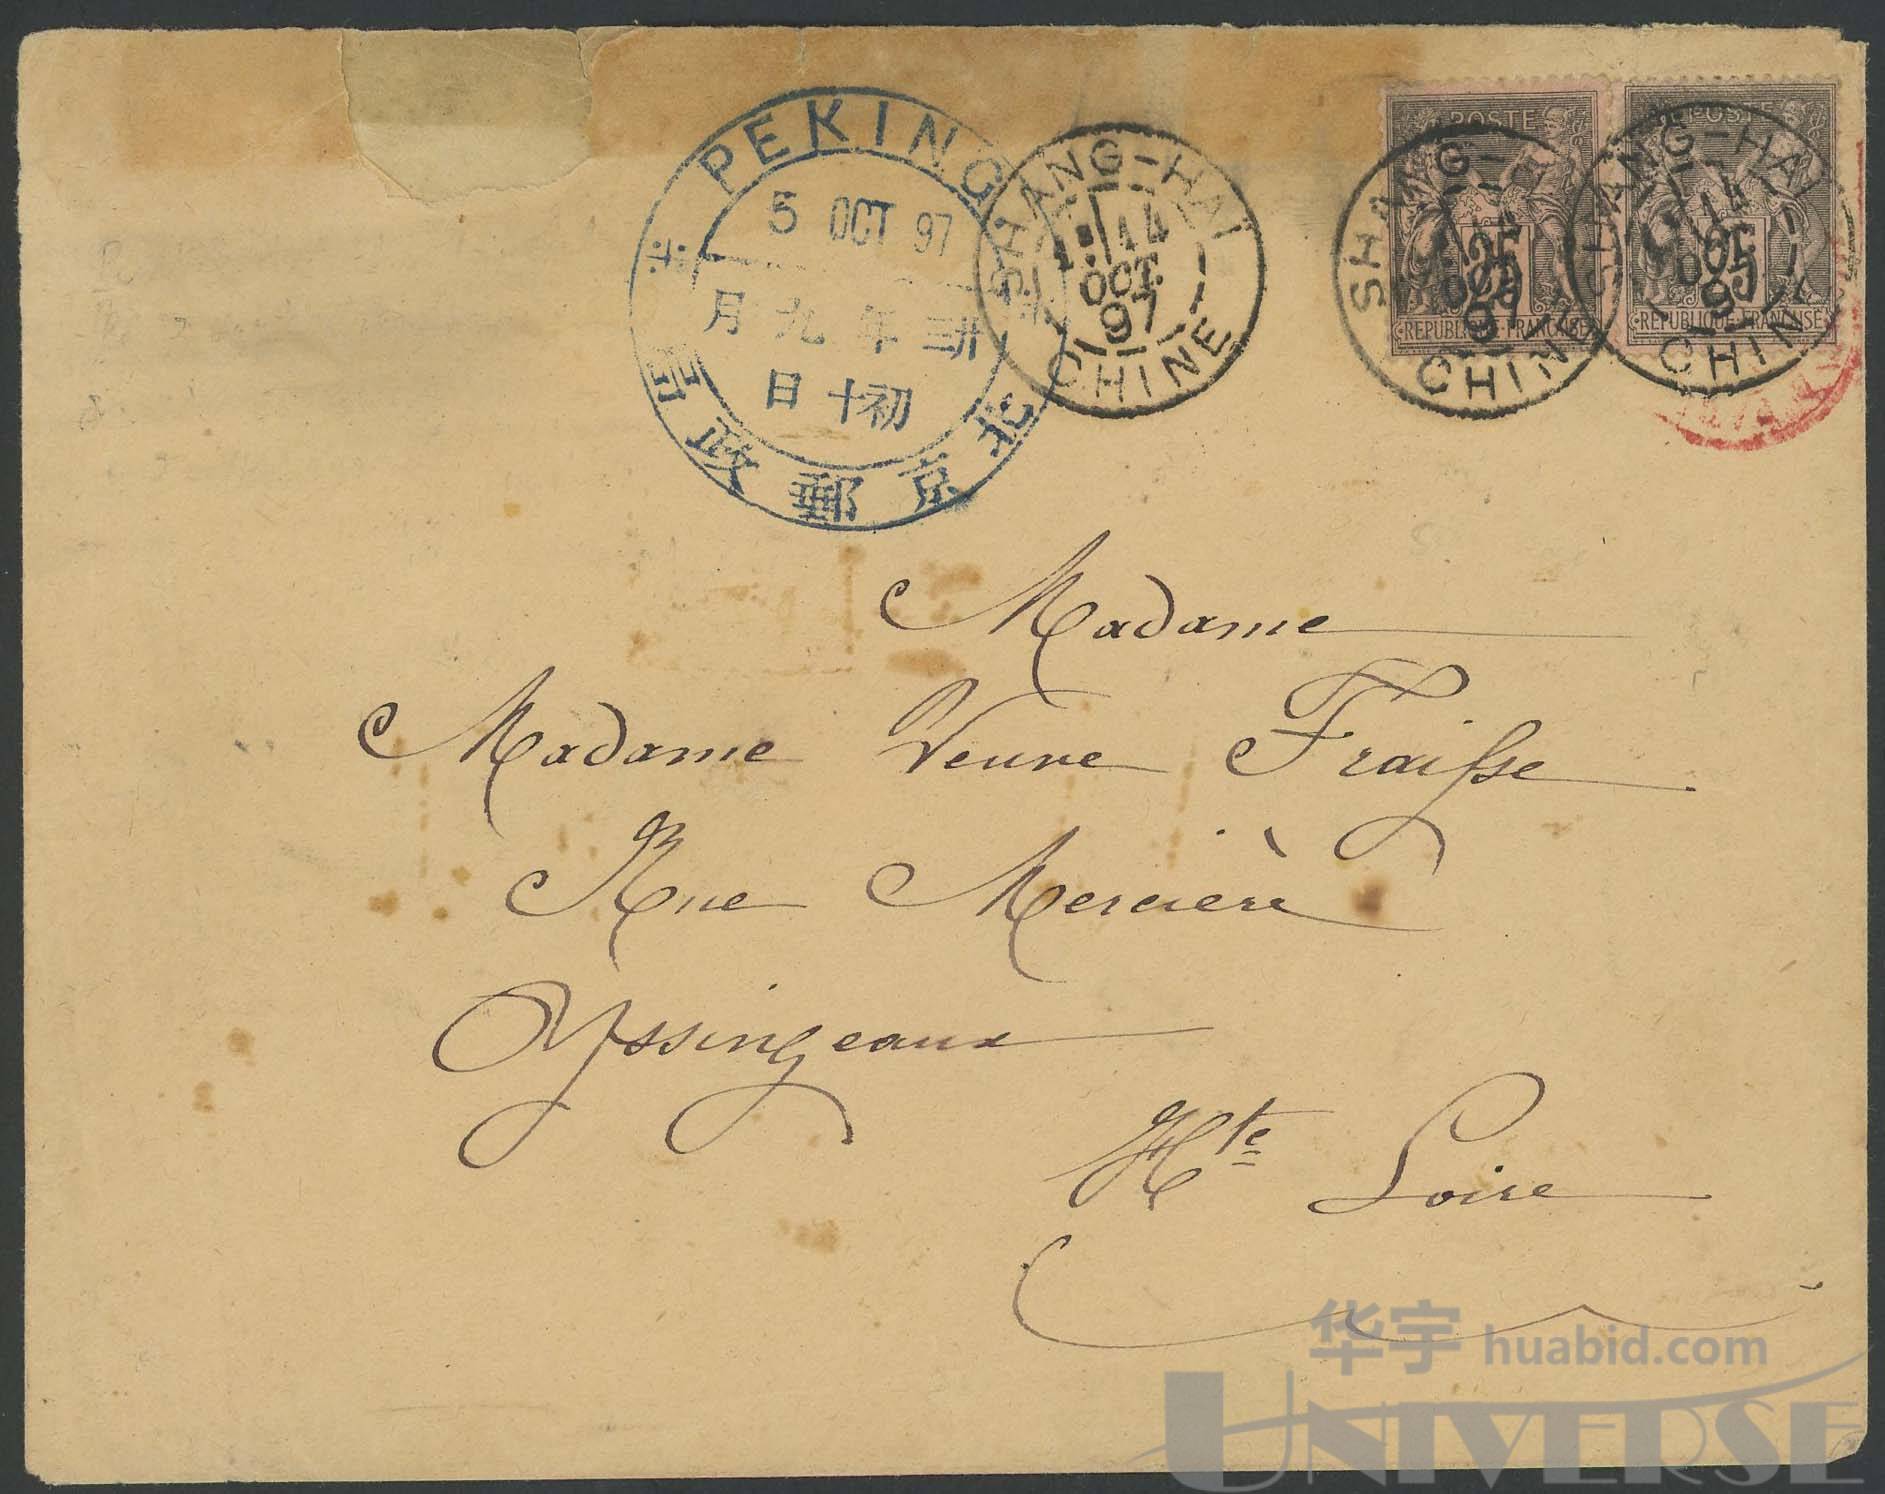 PEKING
5 OCT 97
月九年三廿
日十初
北京郵政局
SHANG-HAÏ
14
OCT.
97
CHINE
POSTE
25
REPUBLIQUE FRANÇAISE
SHANG-
OCT
97
CHINE
POSTE
25
REPUBLIQUE FRANÇAISE
SHANG-HAÏ
14
97
CHINE
Madame
Madame Veuve Fraisse
Rue Mercière
Yssingeaux
Hte Loire
华宇 huabid.com
UNIVERSE